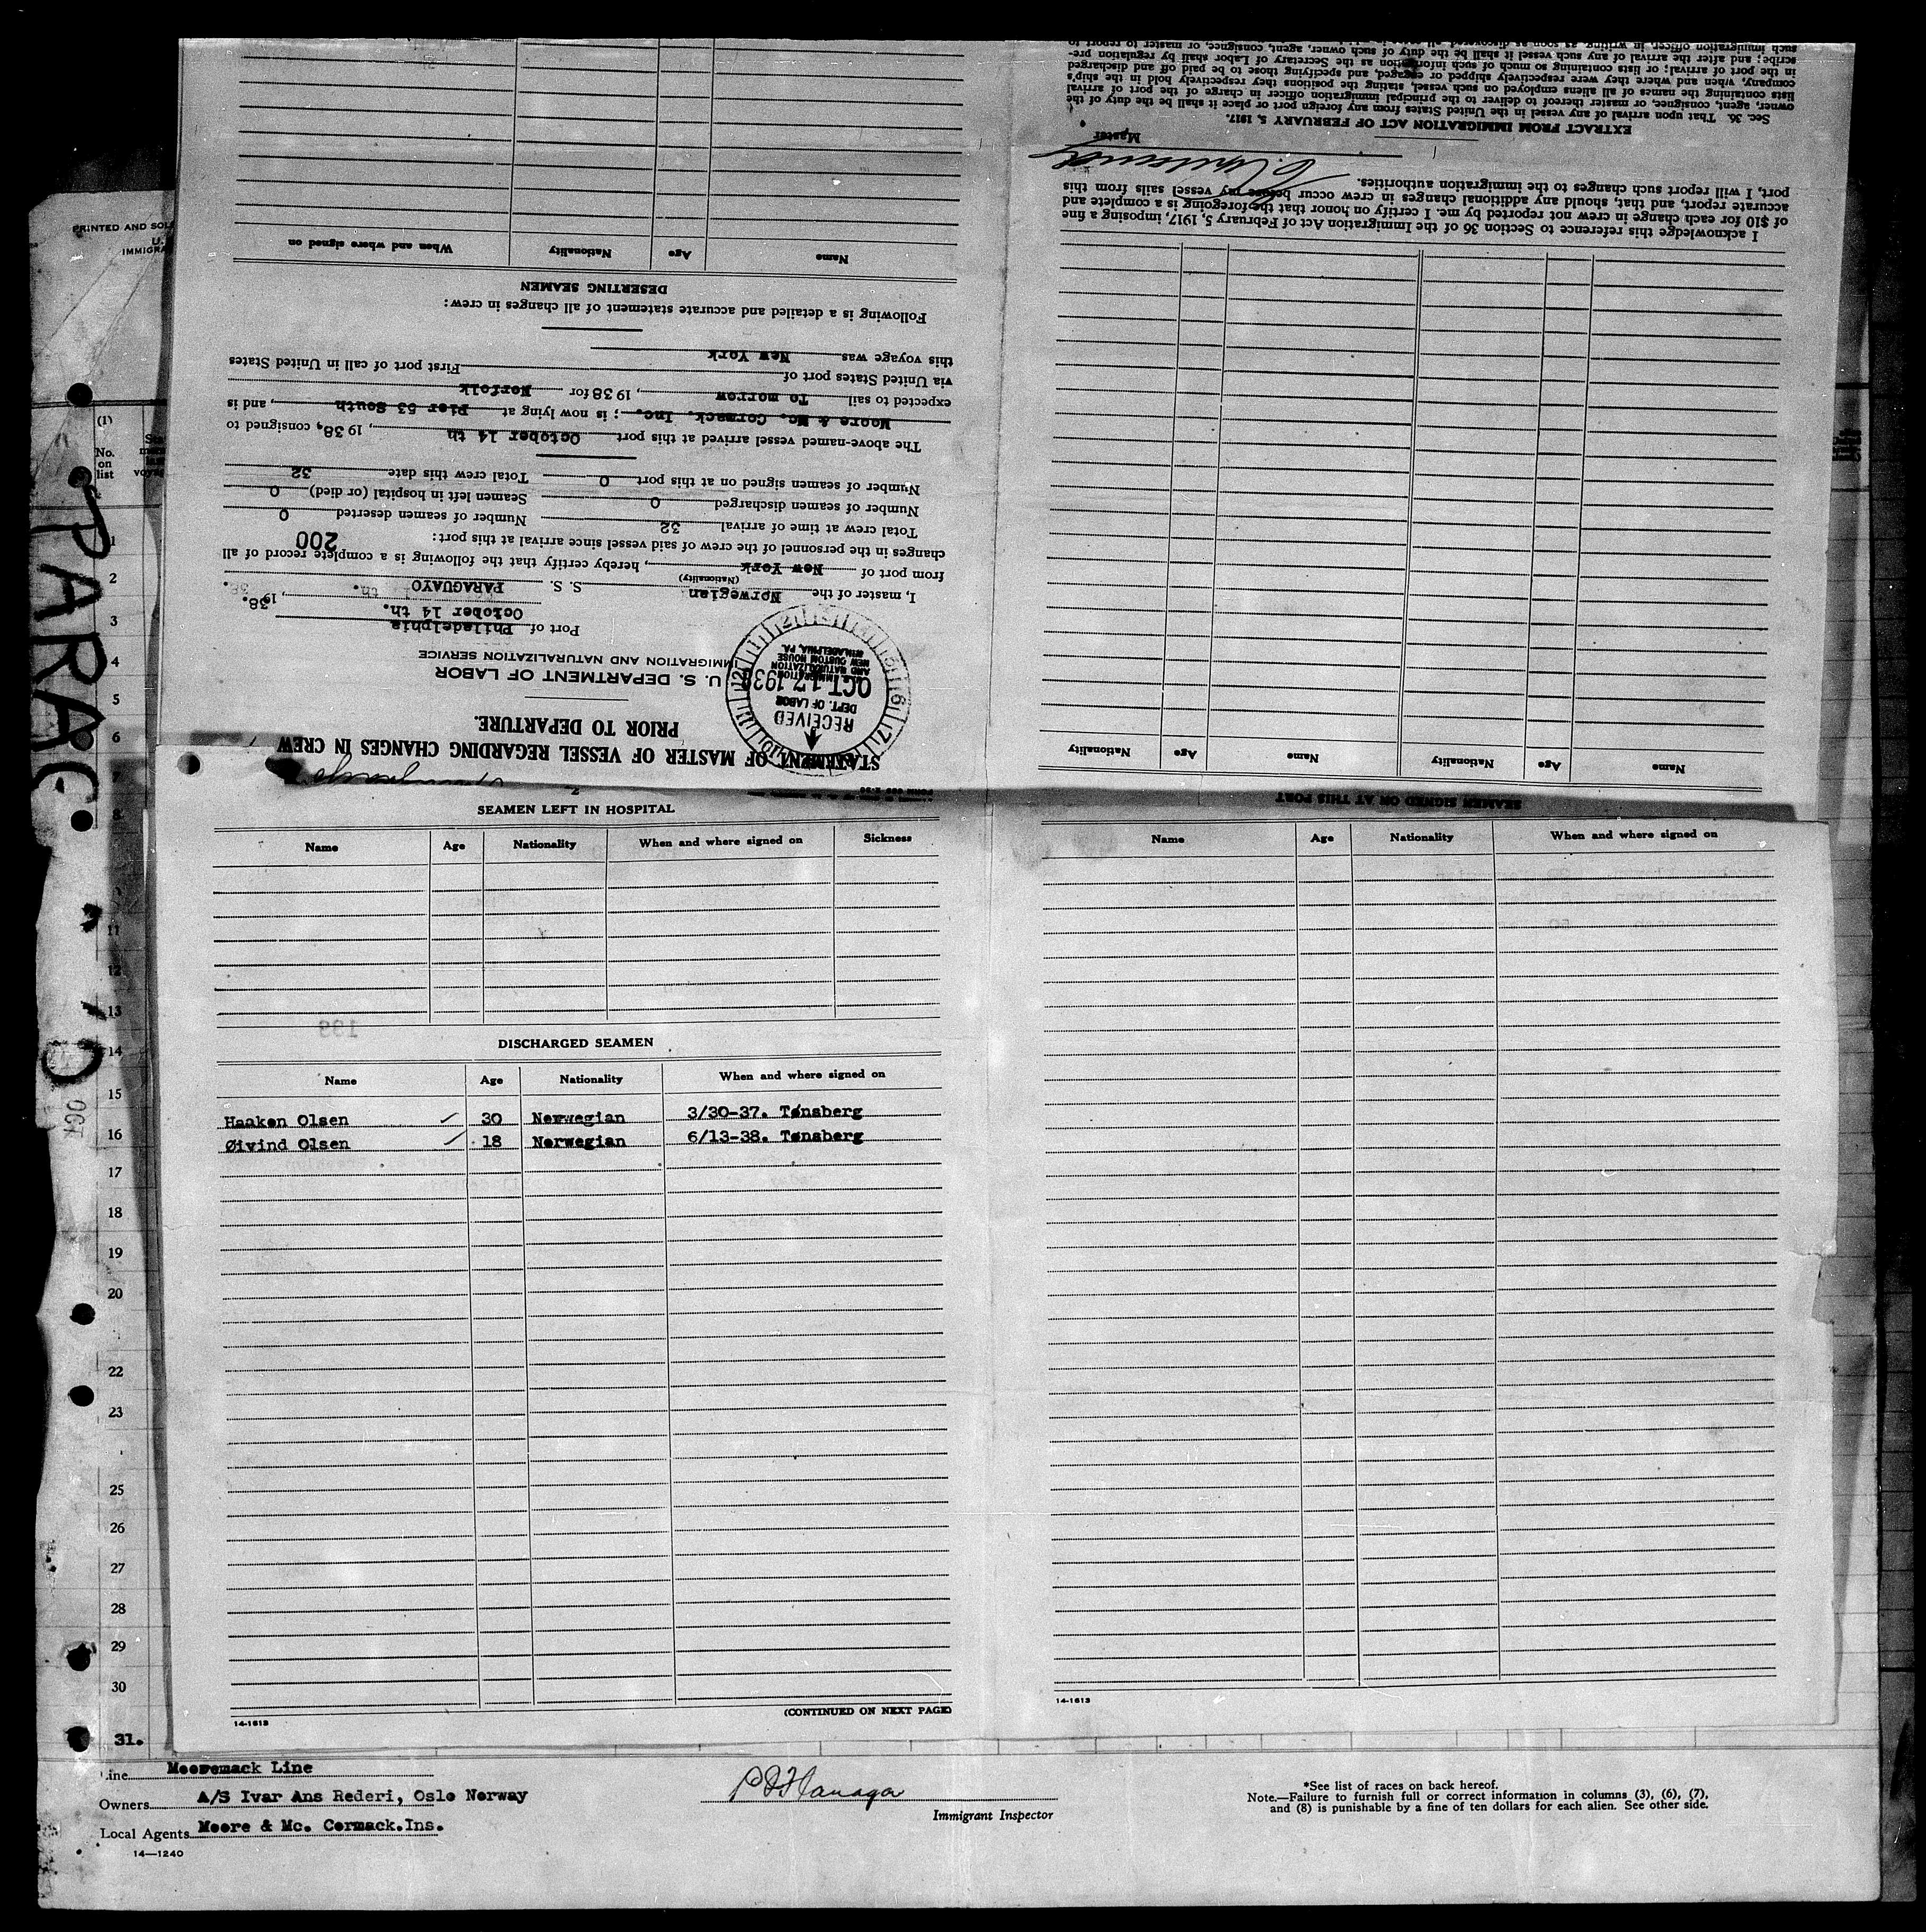 PRINTED AND SOL
U.
IMMIGRA
(1)
No.
on
list
PARAG
OCT
1
2
3
4
5
6
7
8
11
12
13
14
15
16
17
18
19
20
22
23
25
26
27
28
29
30
31.
STATEMENT OF MASTER OF VESSEL REGARDING CHANGES IN CREW
PRIOR TO DEPARTURE.
U. S. DEPARTMENT OF LABOR
IMMIGRATION AND NATURALIZATION SERVICE
RECEIVED
DEPT. OF LABOR
OCT 17 1938
IMMIGRATION
AND NATURALIZATION
NEW CUSTOM HOUSE
PHILADELPHIA, PA.
Port of Philadelphia
October 14 th. , 1938.
I, master of the Norwegian S. S. PARAGUAYO
(Nationality)
from port of New York, hereby certify that the following is a complete record of all
changes in the personnel of the crew of said vessel since arrival at this port: 200
Total crew at time of arrival 32 Number of seamen deserted 0
Number of seamen discharged 0 Seamen left in hospital (or died) 0
Number of seamen signed on at this port 0 Total crew this date 32
The above-named vessel arrived at this port October 14 th, 1938, consigned to
Moore & Mc. Cormack. Inc. ; is now lying at Pier 53 South, and is
expected to sail To morrow, 1938 for Norfolk
via United States port of First port of call in United States
this voyage was New York
Following is a detailed and accurate statement of all changes in crew:
DESERTING SEAMEN
Name Age Nationality When and where signed on
SEAMEN SIGNED ON AT THIS PORT
Name Age Nationality Name Age Nationality
I acknowledge this reference to Section 36 of the Immigration Act of February 5, 1917, imposing a fine
of $10 for each change in crew not reported by me. I certify on honor that the foregoing is a complete and
accurate report, and that, should any additional changes in crew occur before my vessel sails from this
port, I will report such changes to the immigration authorities.
Master
EXTRACT FROM IMMIGRATION ACT OF FEBRUARY 5, 1917.
Sec. 36. That upon arrival of any vessel in the United States from any foreign port or place it shall be the duty of the
owner, agent, consignee, or master thereof to deliver to the principal immigration officer in charge of the port of arrival
lists containing the names of all aliens employed on such vessel, stating the positions they respectively hold in the ship's
company, when and where they were respectively shipped or engaged, and specifying those to be paid off and discharged
in the port of arrival; or lists containing so much of such information as the Secretary of Labor shall by regulation pre-
scribe; and after the arrival of any such vessel it shall be the duty of such owner, agent, consignee, or master to report to
such immigration officer, in writing, as soon as discovered, all
SEAMEN LEFT IN HOSPITAL
Name Age Nationality When and where signed on Sickness
DISCHARGED SEAMEN
Name Age Nationality When and where signed on
Haakon Olsen 30 Norwegian 3/30-37. Tønsberg
Øivind Olsen 18 Norwegian 6/13-38. Tønsberg
14-1613
(CONTINUED ON NEXT PAGE)
Name Age Nationality When and where signed on
14-1613
Line Mooremack Line
Owners A/S Ivar Ans Rederi, Oslo Norway
Local Agents Moore & Mc. Cormack.Ins.
14—1240
Immigrant Inspector
*See list of races on back hereof.
Note.—Failure to furnish full or correct information in columns (3), (6), (7),
and (8) is punishable by a fine of ten dollars for each alien. See other side.